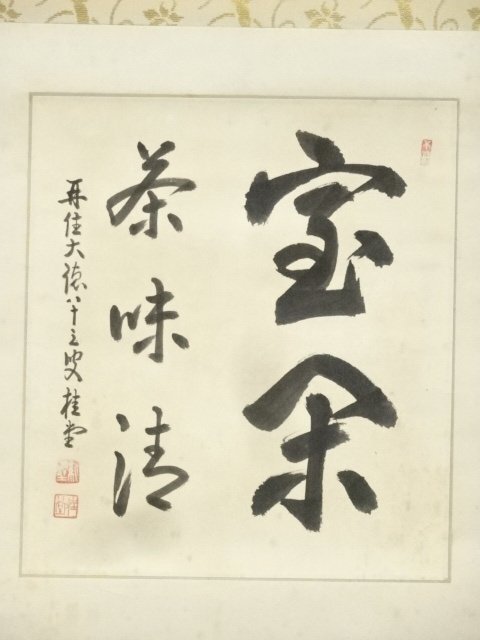 室閑
茶味清
再住大徳八十三叟桂堂